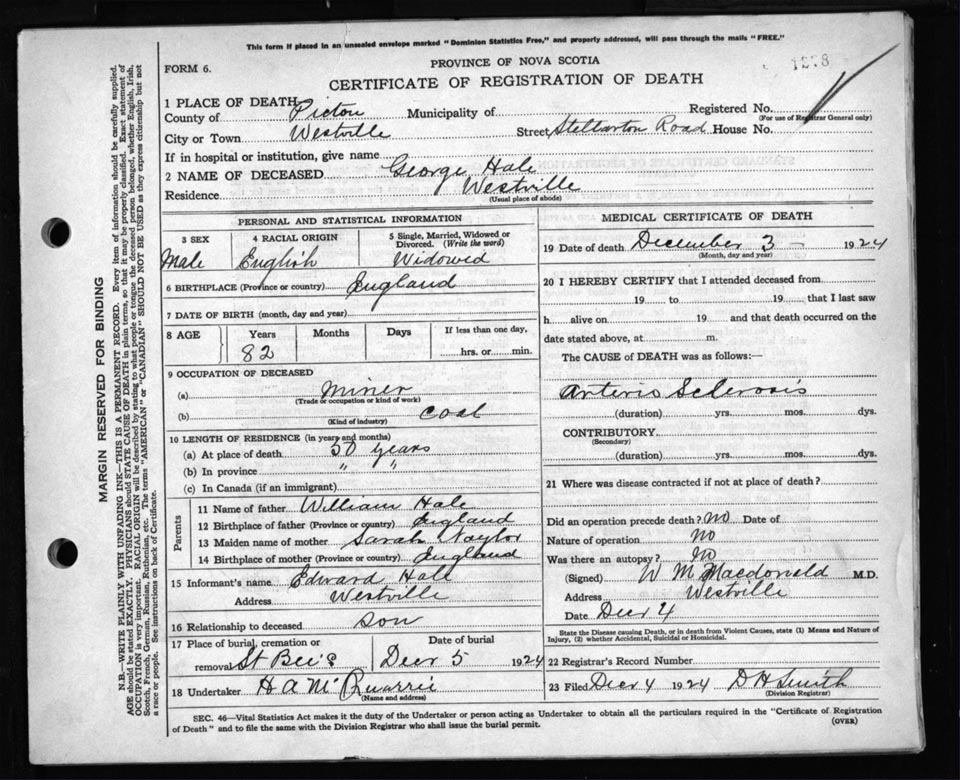 This form if placed in an unsealed envelope marked "Dominion Statistics Free," and properly addressed, will pass through the mails "FREE."
FORM 6.
PROVINCE OF NOVA SCOTIA
1278
CERTIFICATE OF REGISTRATION OF DEATH
1 PLACE OF DEATH
County of Pictou Municipality of Registered No.
(For use of Registrar General only)
City or Town Westville Street Stellarton Road House No.
If in hospital or institution, give name
2 NAME OF DECEASED George Hale
Residence Westville
(Usual place of abode)
PERSONAL AND STATISTICAL INFORMATION
3 SEX 4 RACIAL ORIGIN 5 Single, Married, Widowed or Divorced. (Write the word)
Male English Widowed
6 BIRTHPLACE (Province or country) England
7 DATE OF BIRTH (month, day and year)
8 AGE Years Months Days If less than one day,
82 hrs. or min.
9 OCCUPATION OF DECEASED
(a) Miner
(Trade or occupation or kind of work)
(b) Coal
(Kind of industry)
10 LENGTH OF RESIDENCE (in years and months)
(a) At place of death 50 years
(b) In province " "
(c) In Canada (if an immigrant)
Parents
11 Name of father William Hale
12 Birthplace of father (Province or country) England
13 Maiden name of mother Sarah Naylor
14 Birthplace of mother (Province or country) England
15 Informant's name Edward Hale
Address Westville
16 Relationship to deceased son
17 Place of burial, cremation or Date of burial
removal St Bee's Decr 5 1924
18 Undertaker H A McQuarrie
(Name and address)
MEDICAL CERTIFICATE OF DEATH
19 Date of death December 3 - 1924
(Month, day and year)
20 I HEREBY CERTIFY that I attended deceased from
19 to 19 that I last saw
h alive on 19 and that death occurred on the
date stated above, at m.
The CAUSE of DEATH was as follows:—
Arterio Sclerosis
(duration) yrs. mos. dys.
CONTRIBUTORY
(Secondary)
(duration) yrs. mos. dys.
21 Where was disease contracted if not at place of death?
Did an operation precede death? No Date of
Nature of operation No
Was there an autopsy? No
(Signed) W M Macdonald M.D.
Address Westville
Date Decr 4
State the Disease causing Death, or in death from Violent Causes, state (1) Means and Nature of
Injury, (2) whether Accidental, Suicidal or Homicidal.
22 Registrar's Record Number
23 Filed Decr 4 1924 D H Smith
(Division Registrar)
SEC. 46—Vital Statistics Act makes it the duty of the Undertaker or person acting as Undertaker to obtain all the particulars required in the "Certificate of Registration
of Death" and to file the same with the Division Registrar who shall issue the burial permit.
(OVER)
MARGIN RESERVED FOR BINDING
N.B.—WRITE PLAINLY WITH UNFADING INK—THIS IS A PERMANENT RECORD. Every item of information should be carefully supplied.
AGE should be stated EXACTLY. PHYSICIANS should STATE CAUSE OF DEATH in plain terms, so that it may be properly classified. Exact statement of
OCCUPATION is very important. RACIAL ORIGIN will be described by stating to what people or tongue the deceased person belonged, whether English, Irish,
Scotch, French, German, Russian, Ruthenian, etc. The terms "AMERICAN" or "CANADIAN" SHOULD NOT BE USED as they express citizenship but not
a race or people. See instructions on back of Certificate.